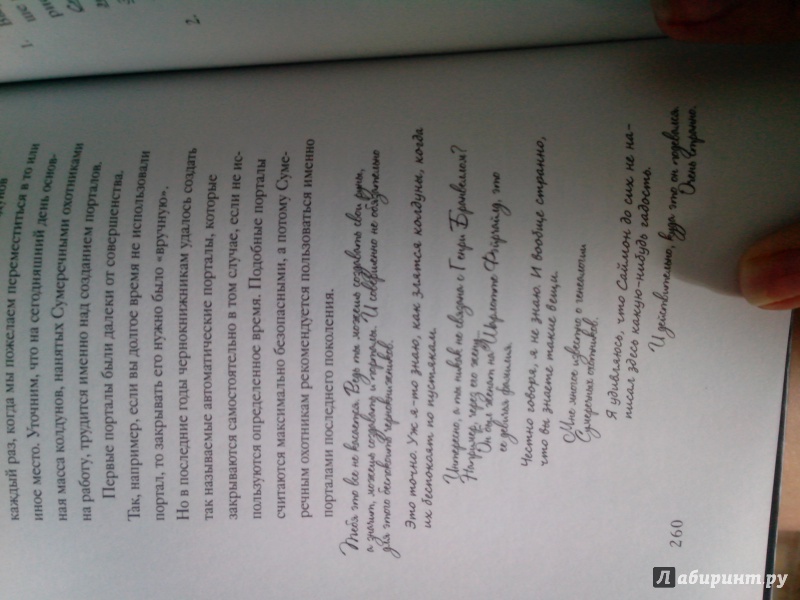 каждый раз, когда мы пожелаем переместиться в то или
иное место. Уточним, что на сегодняшний день основ-
ная масса колдунов, нанятых Сумеречными охотниками
на работу, трудится именно над созданием порталов.
Первые порталы были далеки от совершенства.
Так, например, если вы долгое время не использовали
портал, то закрывать его нужно было «вручную».
Но в последние годы чернокнижникам удалось создать
так называемые автоматические порталы, которые
закрываются самостоятельно в том случае, если не ис-
пользуются определенное время. Подобные порталы
считаются максимально безопасными, а потому Суме-
речным охотникам рекомендуется пользоваться именно
порталами последнего поколения.
Тебя это все не касается. Ведь ты можешь создавать свои руны,
а значит, можешь создавать и порталы. И совершенно не обязательно
для этого беспокоить чернокнижников.
Это точно. Уж я-то знаю, как злятся колдуны, когда
их беспокоят по пустякам.
Интересно, а ты никак не связана с Генри Бранвеллом?
Например, через его жену.
Он был женат на Шарлотте Фэйрчайлд, это
ее девичья фамилия
Честно говоря, я не знаю. И вообще странно,
что вы знаете такие вещи.
Мне многое известно о генеалогии
Сумеречных охотников.
Я удивляюсь, что Саймон до сих не на-
писал здесь какую-нибудь гадость.
И действительно, куда это он подевался.
Очень странно.
260
Лабиринт.ру
1.
2.